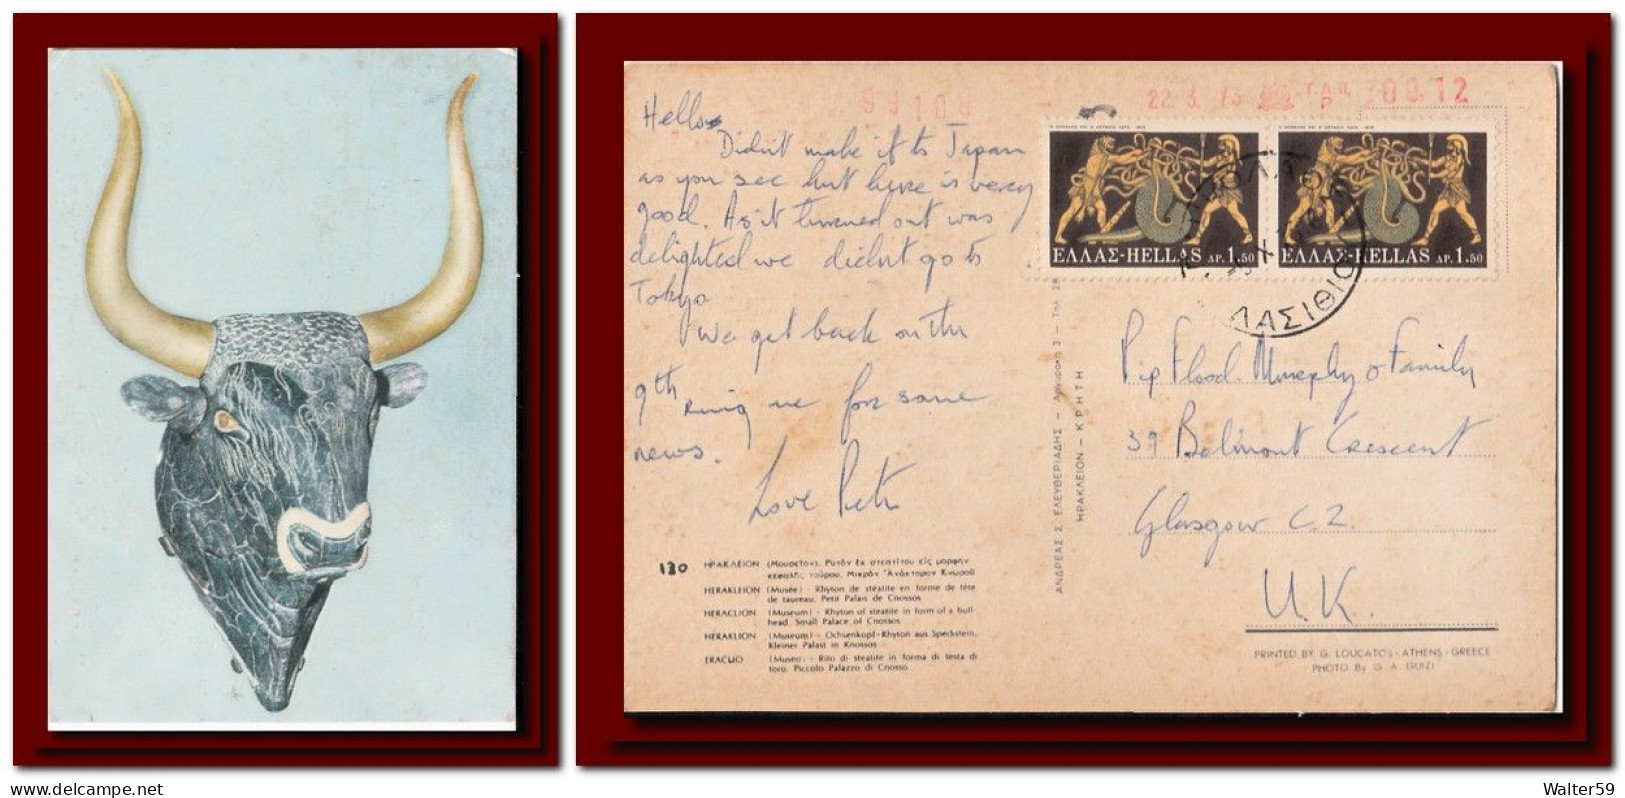 99100
22.3.73 Τ.Α.Π. 200.12
Hello
Didn't make it to Japan
as you see but here is very
good. As it turned out was
delighted we didnt go to
Tokyo
We get back on the
9th ring me for some
news.
Love Pete
ΕΛΛΑΣ-HELLAS ΔΡ. 1.50
ΕΛΛΑΣ-HELLAS ΔΡ. 1.50
ΛΑΣΙΘΙΟΥ
Pip Flood-Murphy & Family
39 Belmont Crescent
Glasgow C.2.
U.K.
ΑΝΔΡΕΑΣ Σ. ΕΛΕΥΘΕΡΙΑΔΗΣ - 3 - Τηλ. 28
ΗΡΑΚΛΕΙΟΝ - ΚΡΗΤΗ
130 ΗΡΑΚΛΕΙΟΝ (Μουσεῖον). Ρυτὸν ἐκ στεατίτου εἰς μορφὴν
κεφαλῆς ταύρου. Μικρὸν Ἀνάκτορον Κνωσοῦ
HERAKLEION (Musée) - Rhyton de stéatite en forme de tête
de taureau. Petit Palais de Cnossos
HERACLION (Museum) - Rhyton of steatite in form of a bull-
head. Small Palace of Cnossos
HERAKLION (Museum) - Ochsenkopf-Rhyton aus Speckstein.
Kleiner Palast in Knossos -
ERACLIO (Museo) - Rito di steatite in forma di testa di
toro. Piccolo Palazzo di Cnosso
PRINTED BY G. LOUCATOS - ATHENS - GREECE
PHOTO BY G. A. GUIZI
www.delcampe.net
Walter59